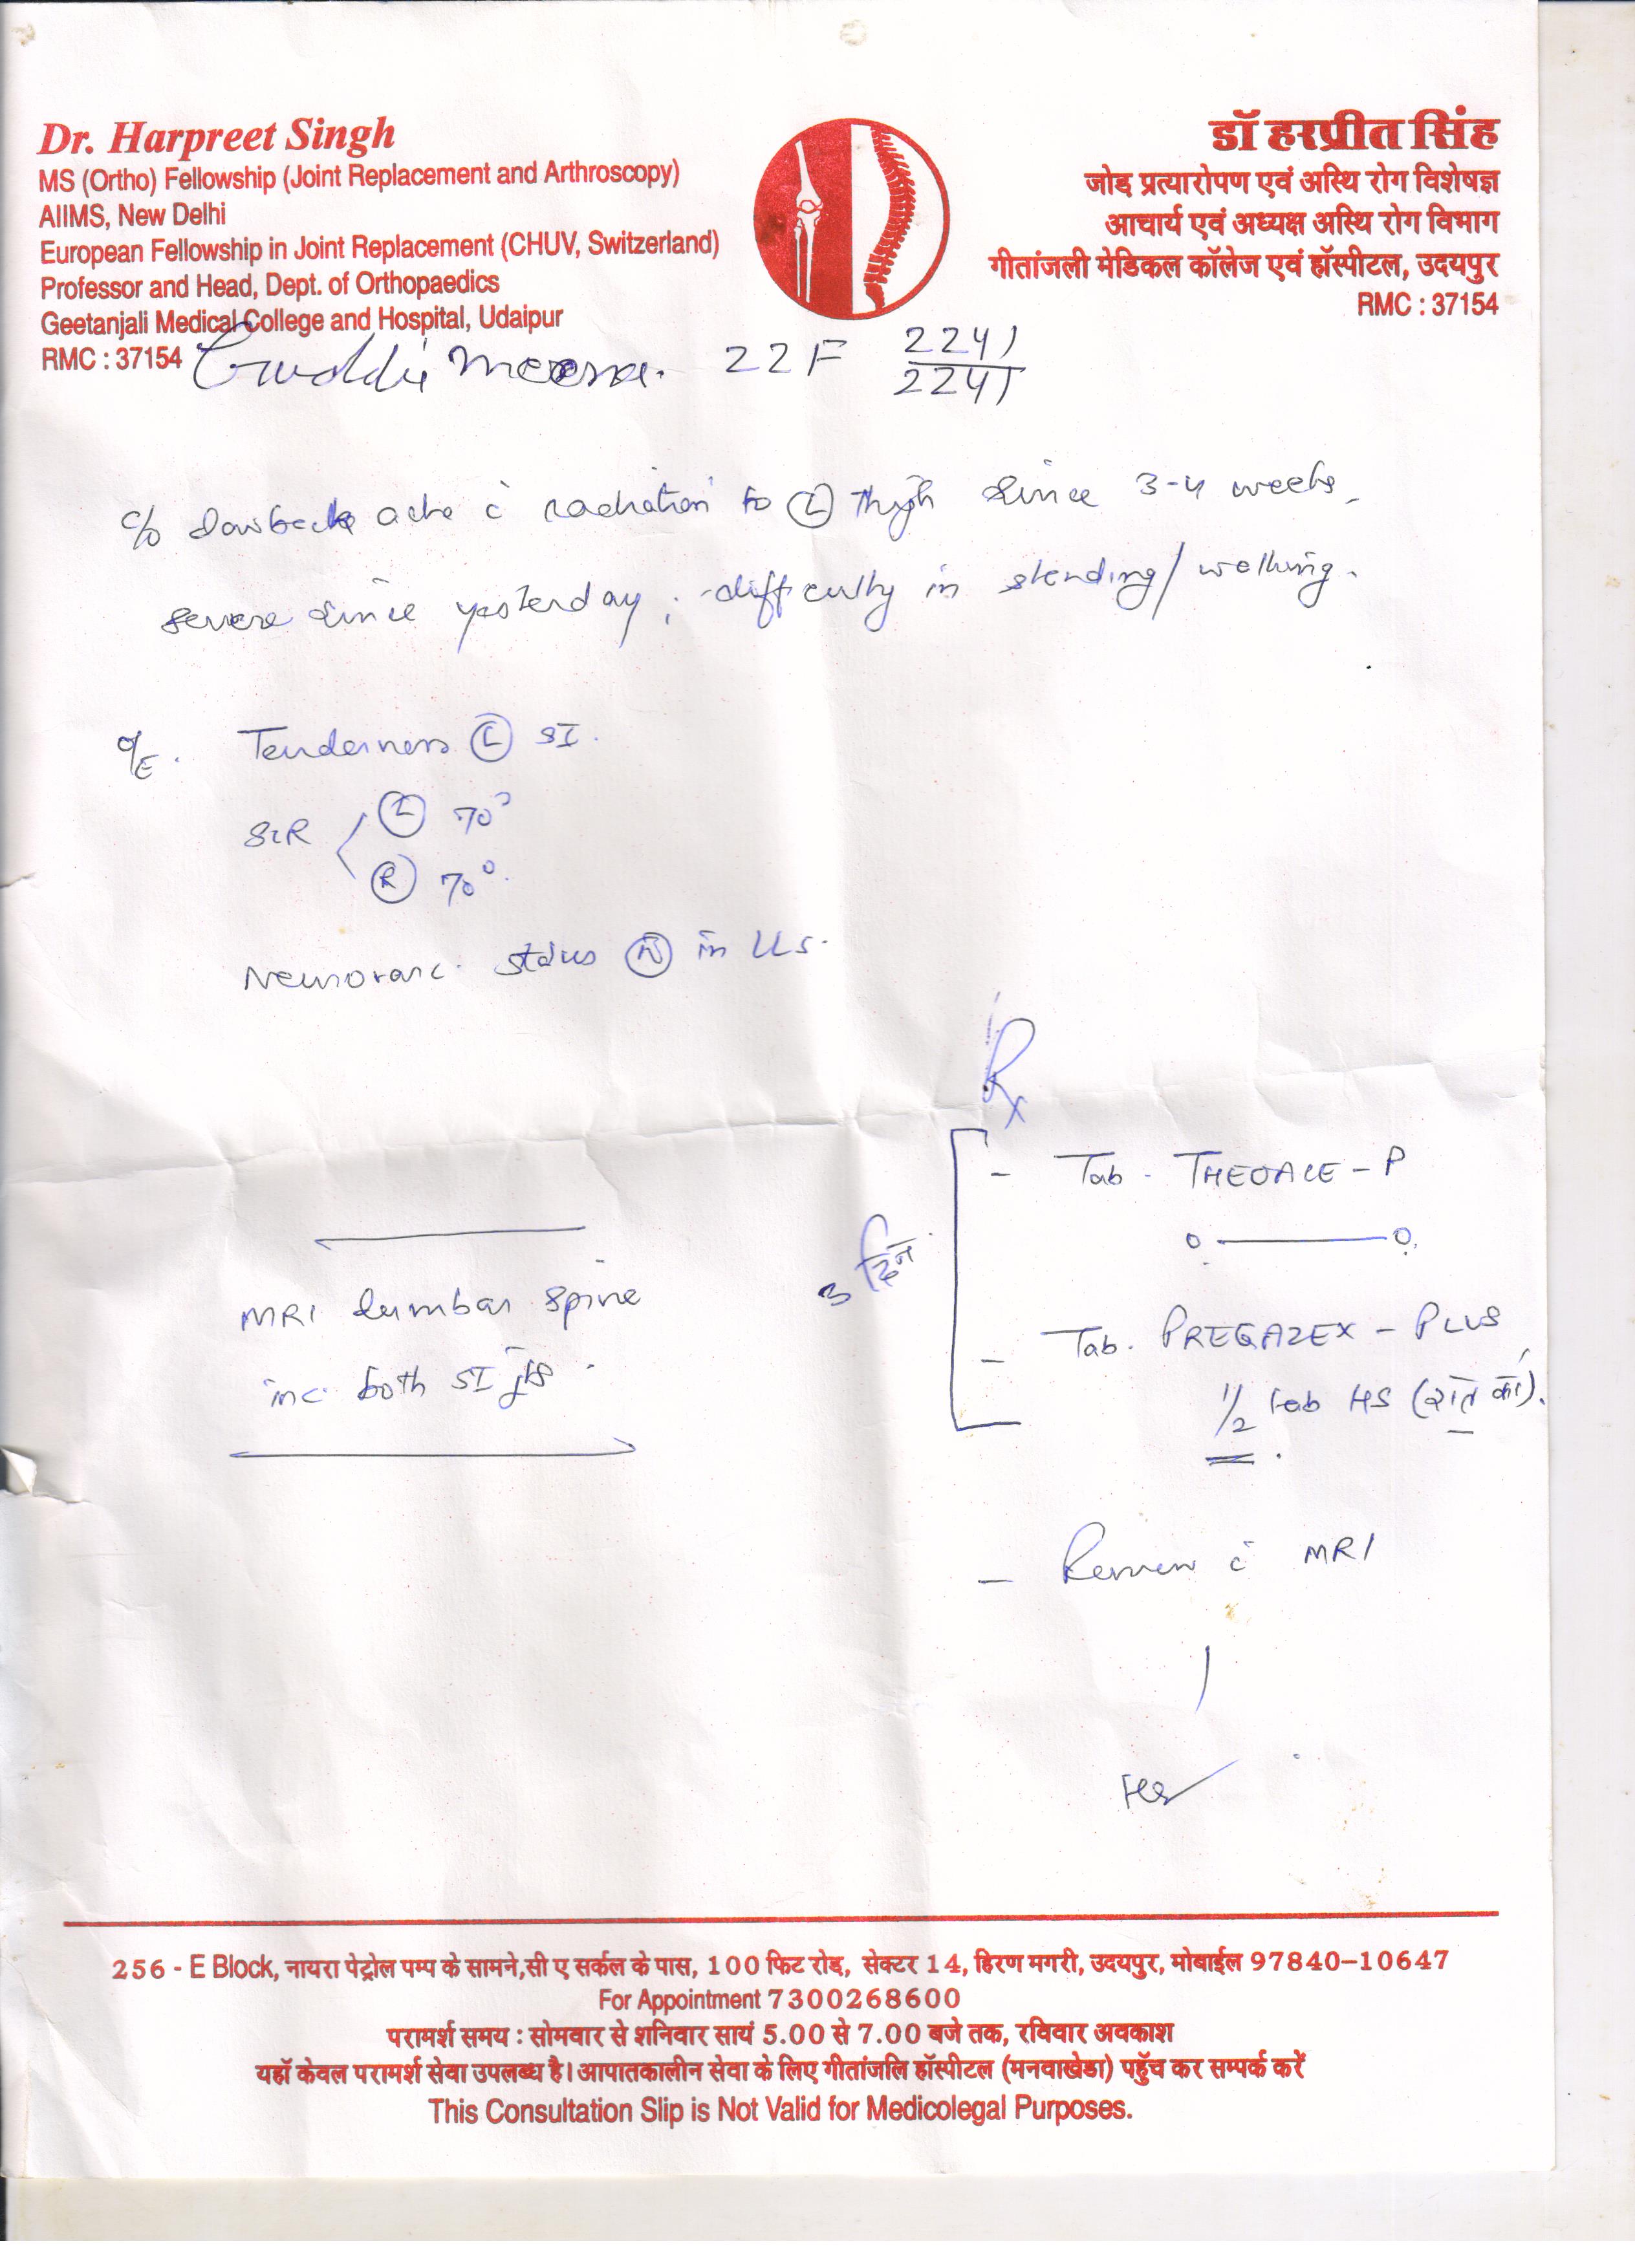 Dr. Harpreet Singh
MS (Ortho) Fellowship (Joint Replacement and Arthroscopy)
AIIMS, New Delhi
European Fellowship in Joint Replacement (CHUV, Switzerland)
Professor and Head, Dept. of Orthopaedics
Geetanjali Medical College and Hospital, Udaipur
RMC : 37154
डॉ हरप्रीत सिंह
जोड़ प्रत्यारोपण एवं अस्थि रोग विशेषज्ञ
आचार्य एवं अध्यक्ष अस्थि रोग विभाग
गीतांजली मेडिकल कॉलेज एवं हॉस्पीटल, उदयपुर
RMC : 37154
Guddi Meena. 22 F
c/o lowback ache c̄ radiation to Ⓛ thigh since 3-4 weeks.
severe since yesterday, difficulty in standing/walking.
O/E. Tenderness Ⓛ SI.
SLR Ⓛ 70°
Ⓡ 70°.
status Ⓝ in LLs.
Rx
3 दिन
- Tab. THEOACE-P
0 — 0
- Tab. PREGAZEX - PLUS
1/2 tab HS (रात को).
MRI lumbar spine
inc. both SI jts.
- Review c̄ MRI
256 - E Block, नायरा पेट्रोल पम्प के सामने,सी ए सर्कल के पास, 100 फिट रोड़, सेक्टर 14, हिरण मगरी, उदयपुर, मोबाईल 97840–10647
For Appointment 7300268600
परामर्श समय : सोमवार से शनिवार सायं 5.00 से 7.00 बजे तक, रविवार अवकाश
यहॉ केवल परामर्श सेवा उपलब्ध है। आपातकालीन सेवा के लिए गीतांजलि हॉस्पीटल (मनवाखेडा) पहुँच कर सम्पर्क करें
This Consultation Slip is Not Valid for Medicolegal Purposes.